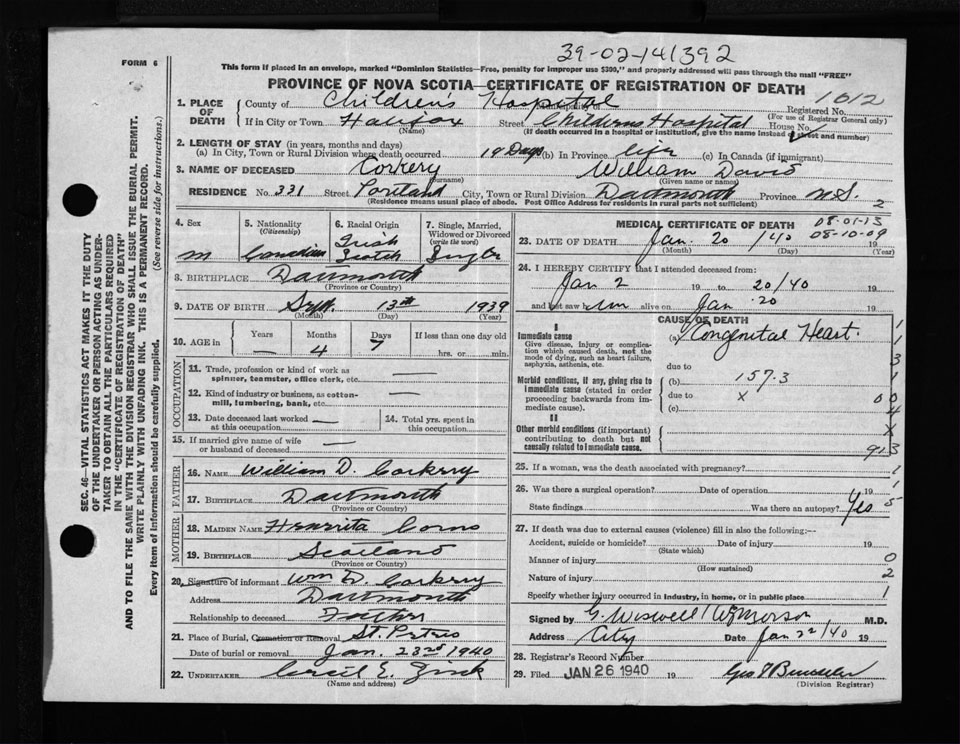 39-02-141392
FORM 6
This form if placed in an envelope, marked "Dominion Statistics—Free, penalty for improper use $300," and properly addressed will pass through the mail "FREE"
PROVINCE OF NOVA SCOTIA—CERTIFICATE OF REGISTRATION OF DEATH
1. PLACE OF DEATH
County of Children's Hospital Registered No. 1012
(For use of Registrar General only)
If in City or Town Halifax Street Childrens Hospital House No.
(Name) (If death occurred in a hospital or institution, give the name instead of street and number)
2. LENGTH OF STAY (in years, months and days)
(a) In City, Town or Rural Division where death occurred 19 Days (b) In Province life (c) In Canada (if immigrant)
3. NAME OF DECEASED Corkery William David
(Surname) (Given name or names)
RESIDENCE No. 331 Street Portland City, Town or Rural Division Dartmouth Province N.S. 2
(Residence means usual place of abode. Post Office Address for residents in rural parts not sufficient)
4. Sex
m
5. Nationality
(Citizenship)
Canadian
6. Racial Origin
Irish
Scotch
7. Single, Married, Widowed or Divorced
(write the word)
Single
8. BIRTHPLACE Dartmouth
(Province or Country)
9. DATE OF BIRTH Sept. 13th 1939
(Month) (Day) (Year)
10. AGE in
Years Months Days If less than one day old
— 4 7 hrs. or min.
OCCUPATION
11. Trade, profession or kind of work as spinner, teamster, office clerk, etc. —
12. Kind of industry or business, as cotton-mill, lumbering, bank, etc. —
13. Date deceased last worked at this occupation —
14. Total yrs. spent in this occupation
15. If married give name of wife or husband of deceased —
FATHER
16. NAME William D. Corkery
17. BIRTHPLACE Dartmouth
(Province or Country)
MOTHER
18. MAIDEN NAME Henrietta
19. BIRTHPLACE Scotland
(Province or Country)
20. Signature of informant Wm D. Corkery
Address Dartmouth
Relationship to deceased Father
21. Place of Burial, Cremation or Removal St. Peters
Date of burial or removal Jan. 23rd 1940
22. UNDERTAKER Cecil E. Zink
(Name and address)
MEDICAL CERTIFICATE OF DEATH
08-01-13
08-10-09
23. DATE OF DEATH Jan. 20 /40 19
(Month) (Day) (Year)
24. I HEREBY CERTIFY that I attended deceased from:
Jan 2 19 to 20/40 19
and last saw him alive on Jan 20 19
CAUSE OF DEATH
I
Immediate cause
Give disease, injury or complication which caused death, not the mode of dying, such as heart failure, asphyxia, asthenia, etc.
(a) Congenital Heart.
due to
Morbid conditions, if any, giving rise to immediate cause (stated in order proceeding backwards from immediate cause).
(b) 157.3
due to x
(c)
II
Other morbid conditions (if important) contributing to death but not causally related to immediate cause.
1
1
3
1
0 0
4
X
913
25. If a woman, was the death associated with pregnancy? 1
26. Was there a surgical operation? Date of operation 19 1
State findings Was there an autopsy? Yes 5
27. If death was due to external causes (violence) fill in also the following:—
Accident, suicide or homicide? Date of injury 19
(State which)
Manner of injury 0
(How sustained)
Nature of injury 2
Specify whether injury occurred in industry, in home, or in public place 1
Signed by G. Wiswell M.D.
Address City Date Jan 22/40 19
28. Registrar's Record Number
29. Filed JAN 26 1940 19
(Division Registrar)
SEC. 46—VITAL STATISTICS ACT MAKES IT THE DUTY
OF THE UNDERTAKER OR PERSON ACTING AS UNDER-
TAKER TO OBTAIN ALL THE PARTICULARS REQUIRED
IN THE "CERTIFICATE OF REGISTRATION OF DEATH"
AND TO FILE THE SAME WITH THE DIVISION REGISTRAR WHO SHALL ISSUE THE BURIAL PERMIT.
WRITE PLAINLY WITH UNFADING INK. THIS IS A PERMANENT RECORD.
Every item of information should be carefully supplied. (See reverse side for instructions.)